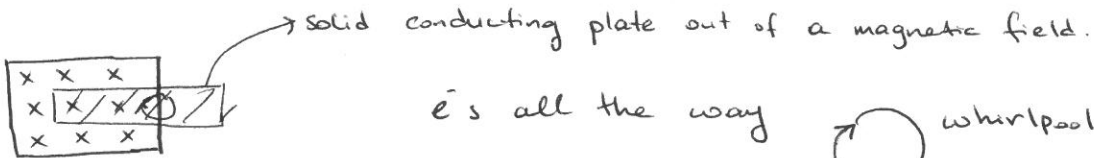 solid conducting plate out of a magnetic field.
x x x
x x x
e's all the way whirlpool
x x x